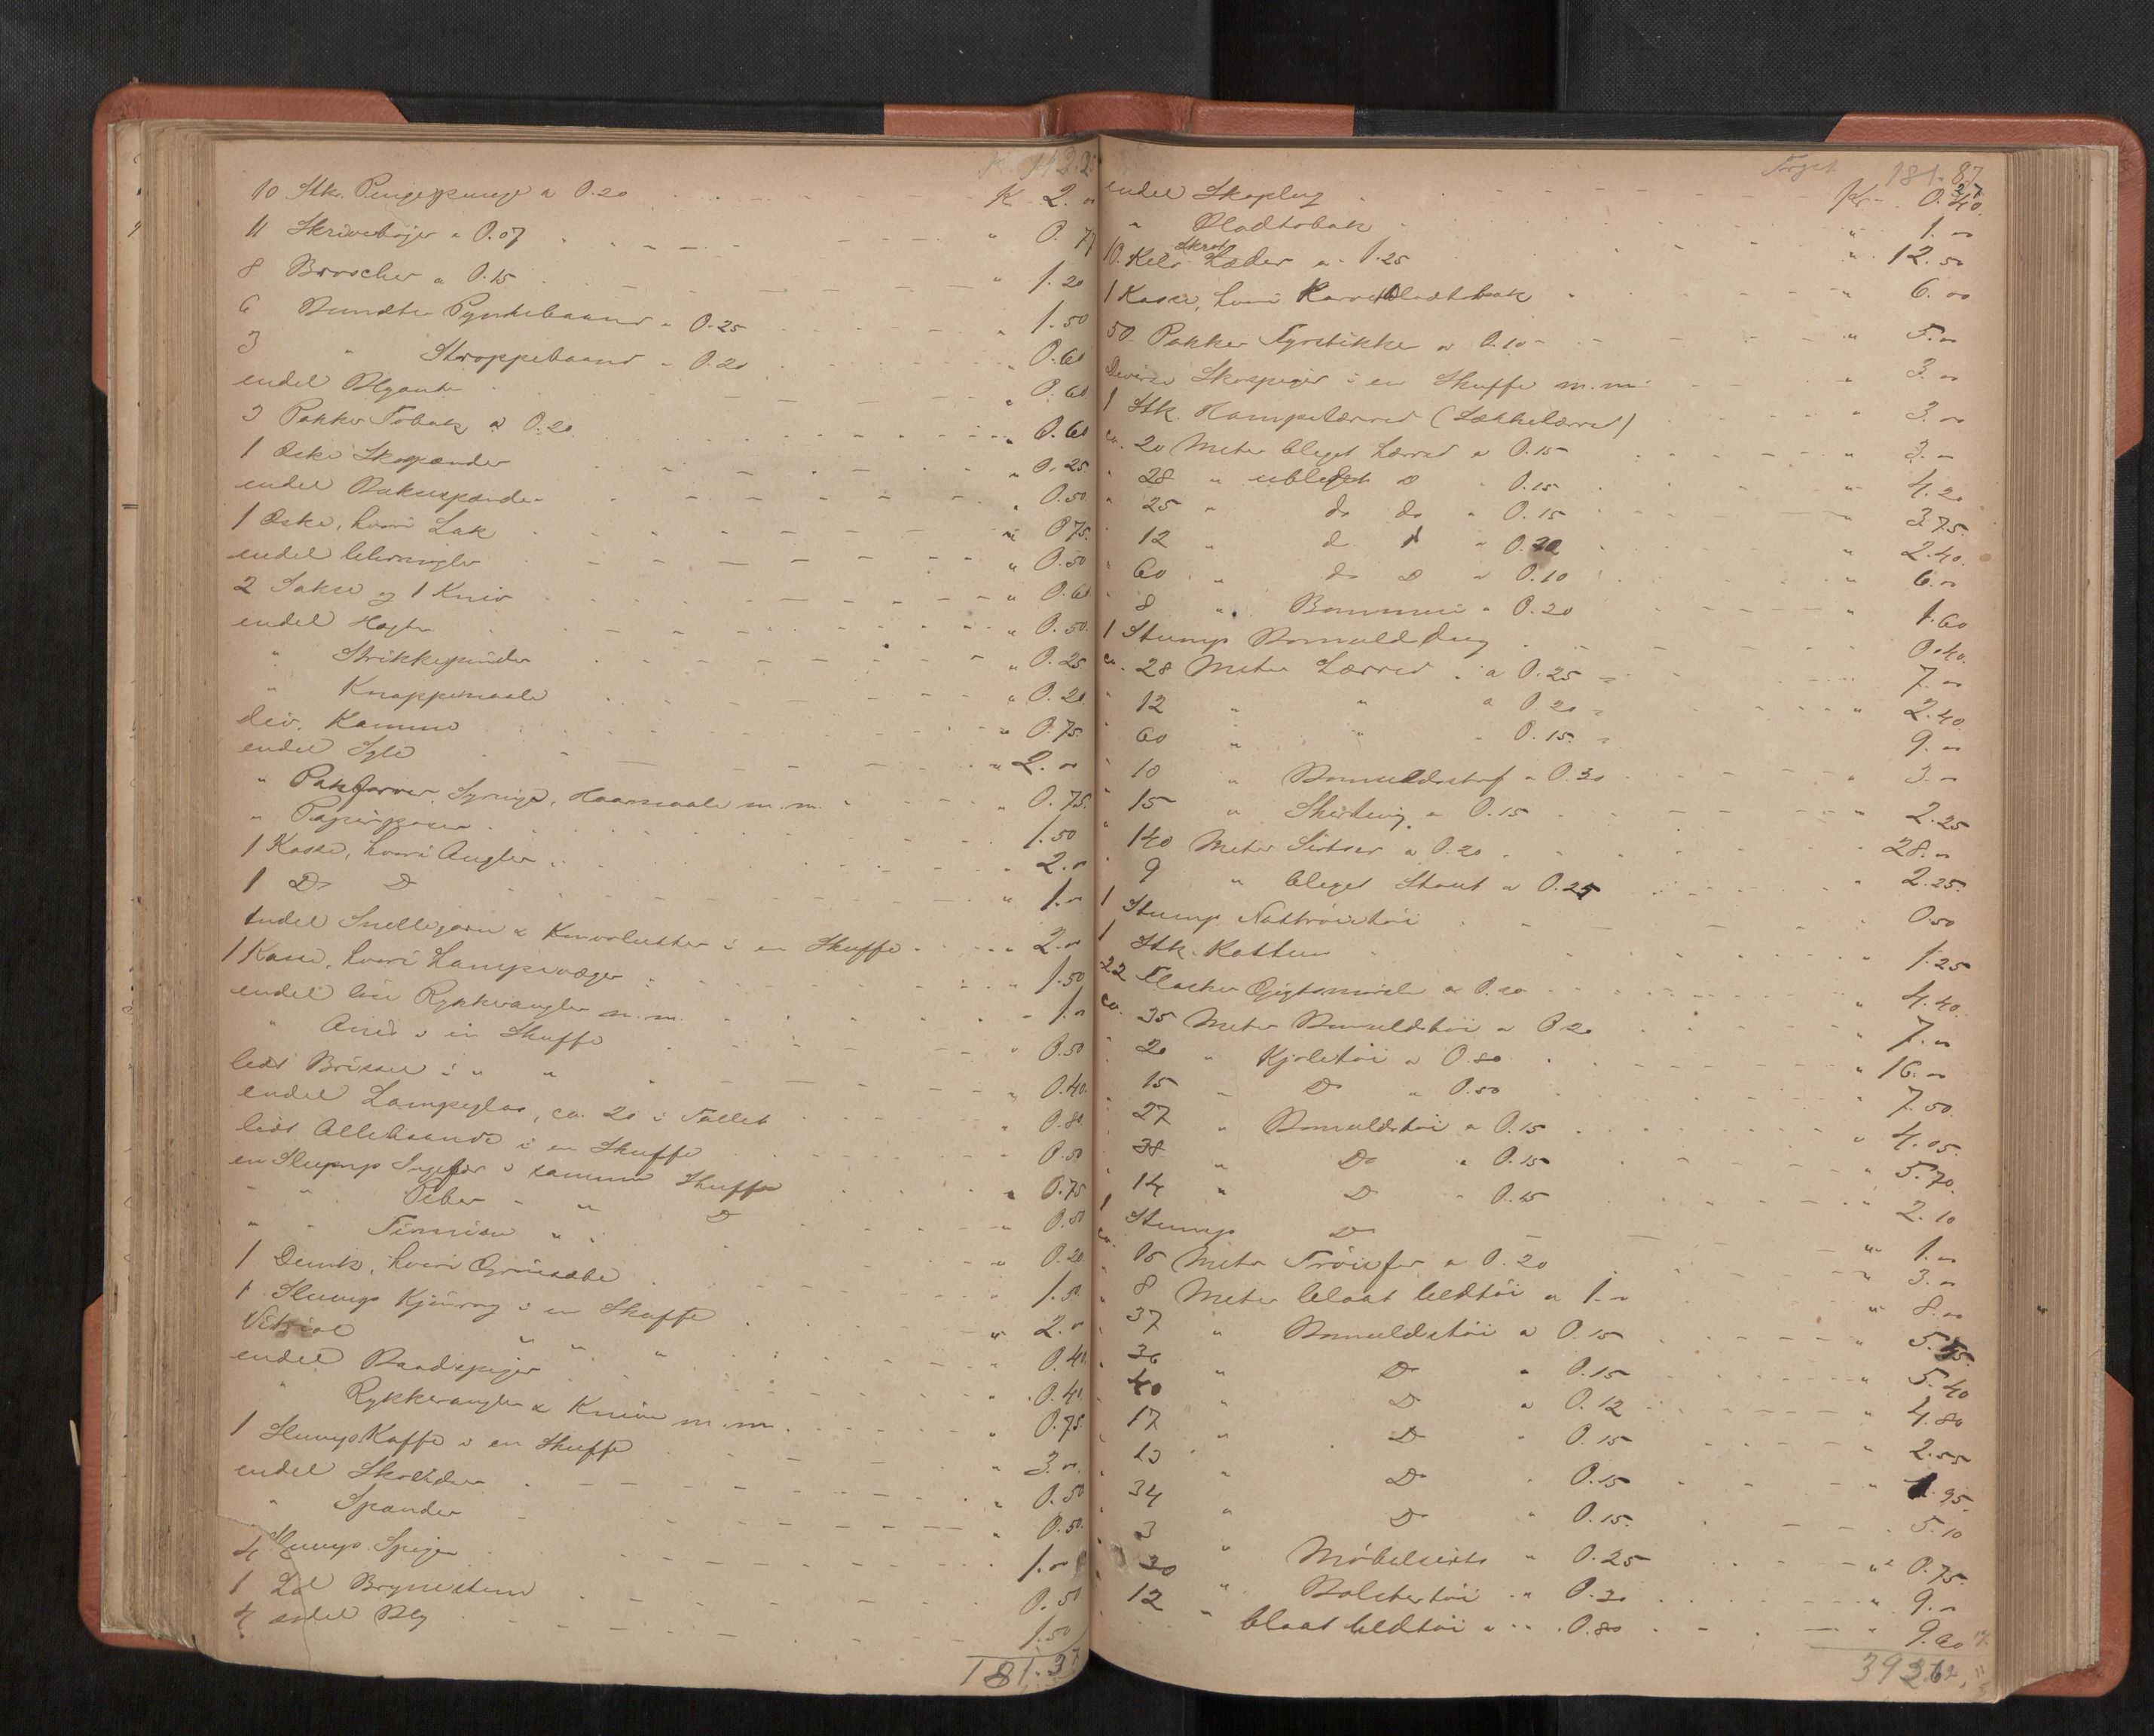 10 Stk. Pengepunge a 0.20 K. 2.00
11 Skrivebøger a 0.07 " 0.77
8 Broscher a 0.15 " 1.20
6 Bundter Pyntebaand a 0.25 " 1.50
3 " Stroppebaand a 0.20 " 0.60
endel Blyanter " 0.60
3 Pakker Tobak a 0.20 " 0.60
1 Æske Skospænder " 0.25
endel Buksespænder " 0.50
1 Æske, hvori Lak " 0.75
endel " 0.50
2 Sakse og 1 Kniv " 0.60
endel Hægter " 0.50
" Strikkepinder " 0.25
" Knappenaale " 0.20
div. Kamme " 0.75
endel Syle " 2.00
" Pakfarver, Syringe, Haarnaale m.m. " 0.75
" Papirposer 1.50
1 Kasse, hvori Angler 2.00
1 Do Do " 1.00
Endel Snellegarn & Konvolutter i en Skuffe 2.00
1 Kasse, hvori Lampevæger " 1.50
endel Rykkerangler m.m. 1.00
" Anis i en Skuffe " 0.50
lidt Brissel i " " " 0.40
endel Lampeglas, ca. 20 i Tallet " 0.80
lidt Allehaande i en Skuffe 0.50
en Slump Ingefær i samme Skuffe " 0.75
" " Peber " " Do " 0.50
" " " " " 0.20
1 Dunk, hvori Grønsæbe " 1.50
1 Slump Kjønrøg i en Skuffe " 2.00
Vitriol " " " 0.40
endel Baadspiger " 0.40
" Rykkerangler & Knive m.m. " 0.75
1 Slump Kaffe i en Skuffe " 3.00
endel " 0.50
" Spænder " 0.50
Slump Spiger 1.00
1 Brynestene 0.50
endel Bly 1.50
181.37
Trspt 181.37
endel Skopløg Kr. 0.40
" Bladtobak " 1.00
10 Kilo Skrot Læder a 1.25 " 12.50
1 Kasse, hvori Bladtobak " 6.00
50 Pakker Fyrstikker a 0.10 " 5.00
Diverse Skospiger i en Skuffe m.m. " 3.00
1 Stk. Hampelærred (Sækkelærred) " 3.00
ca. 20 Meter bleget Lærred a 0.15 " 3.00
" 28 " ubleget Do " 0.15 " 4.20
" 25 " do do " 0.15 " 3.75
" 12 " d d " 0.20 " 2.40
" 60 " do Do " 0.10 " 6.00
" 8 " Bommesi a 0.20 " 1.60
1 Stump Bomuldsdug 0.40
ca. 28 Meter Lærred a 0.25 7.00
" 12 " " a 0.20 " 2.40
" 60 " " " 0.15 9.00
" 10 " Bomuldsstof a 0.30 " 3.00
" 15 " Shirting a 0.15 " 2.25
" 140 Meter Sirtser a 0.20 28.00
" 9 " bleget Stout a 0.25 " 2.25
1 Stump Nattrøietøi 0.50
1 Stk. Kattun 1.25
22 Flasker Gigtsmørelse a 0.20 " 4.40
ca. 35 Meter Bomuldstøi a 0.20 " 7.00
" 20 " Kjoletøi a 0.80 " 16.00
" 15 " Do " 0.50 " 7.50
" 27 " Bomuldstøi a 0.15 " 4.05
" 38 " Do " 0.15 " 5.70
" 14 " Do " 0.15 " 2.10
1 Stump Do " 1.00
ca. 15 Meter Trøiefor a 0.20 3.00
" 8 Meter blaat Uldtøi a 1.00 " 8.00
" 37 " Bomuldstøi a 0.15 " 5.55
" 36 " Do " 0.15 " 5.40
" 40 " Do a 0.12 " 4.80
" 17 " Do " 0.15 2.55
" 13 " Do " 0.15 1.95
" 34 " Do " 0.15 5.10
" 3 " Møbelsirts " 0.25 " 0.75
30 " Bolstertøi " 0.30 " 9.00
12 " blaat Uldtøi " 0.80 " 9.60
392.62